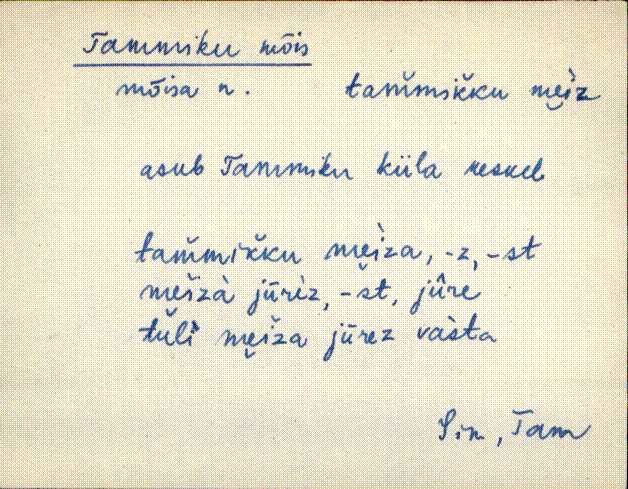 Tammiku mõis
mõisa n. tam̆mik̆ku mẹìz
asub Tammiku küla keskel
tam̆mik̆ku mẹìza, -z, -st
mẹĭzà jūrèz, -st, jûre
tŭlì mẹĭza jūrez vàsta
Sim, Tam